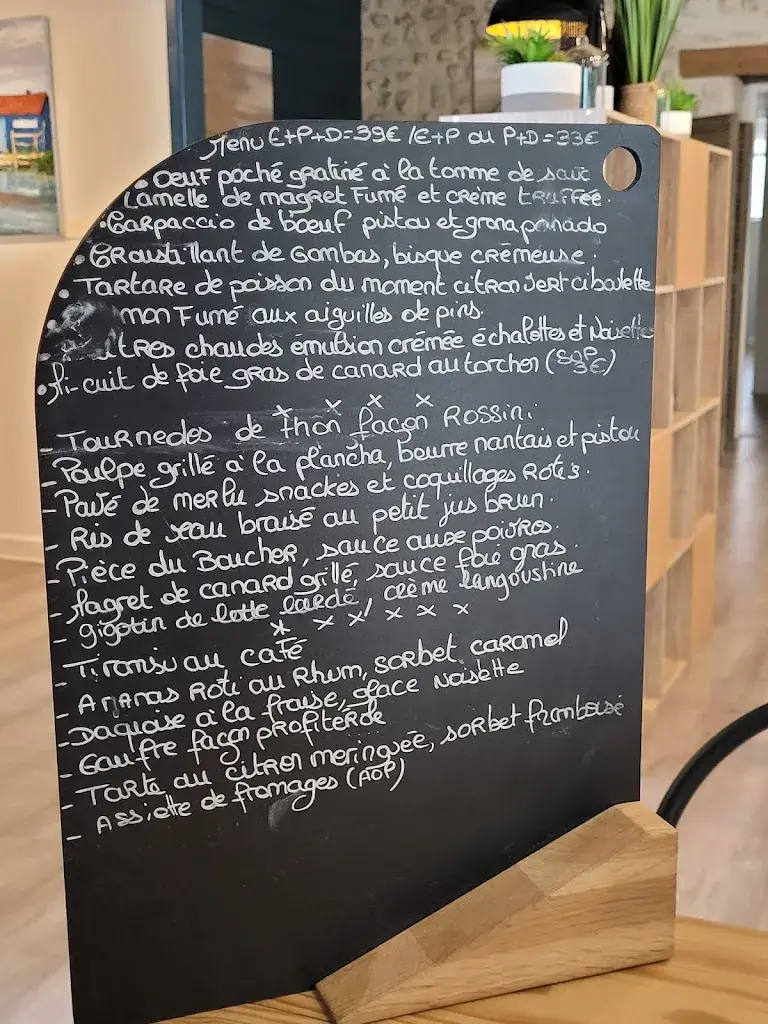 Menu E+P+D=39€ /E+P ou P+D=33€
• OEUF poché gratiné à la tomme de
Lamelle de magret Fumé et crème truffée.
• Carpaccio de boeuf pistou et grana panado
• CROUSTILLANT de Gambas, bisque crémeuse.
• TARTARE de poisson du moment citron vert ciboulette
mon Fumé aux aiguilles de pins.
tres chaudes émulsion crémée échalottes et Noisettes
• Mi-cuit de foie gras de canard au torchon (SUP 3€)
x x x x
- Tournedos de thon façon Rossini
- Poulpe grillé à la plancha, beurre nantais et pistou
- Pavé de merlu snackés et coquillages Rotis.
- Ris de veau braisé au petit jus brun.
- Pièce du Boucher, sauce aux poivres.
- Magret de canard grillé, sauce foie gras.
- gigotin de lotte lardé, crème langoustine
x x x x x x
- Tiramisu au café
- Ananas Roti au Rhum, sorbet caramel
- Daquoise à la fraise, glace Noisette
- Gaufre façon profiterole
- Tarte au citron meringuée, sorbet framboise
- Assiette de fromages (AOP)